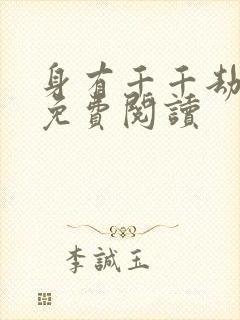 身有千千劫
免費閱讀
李誠玉